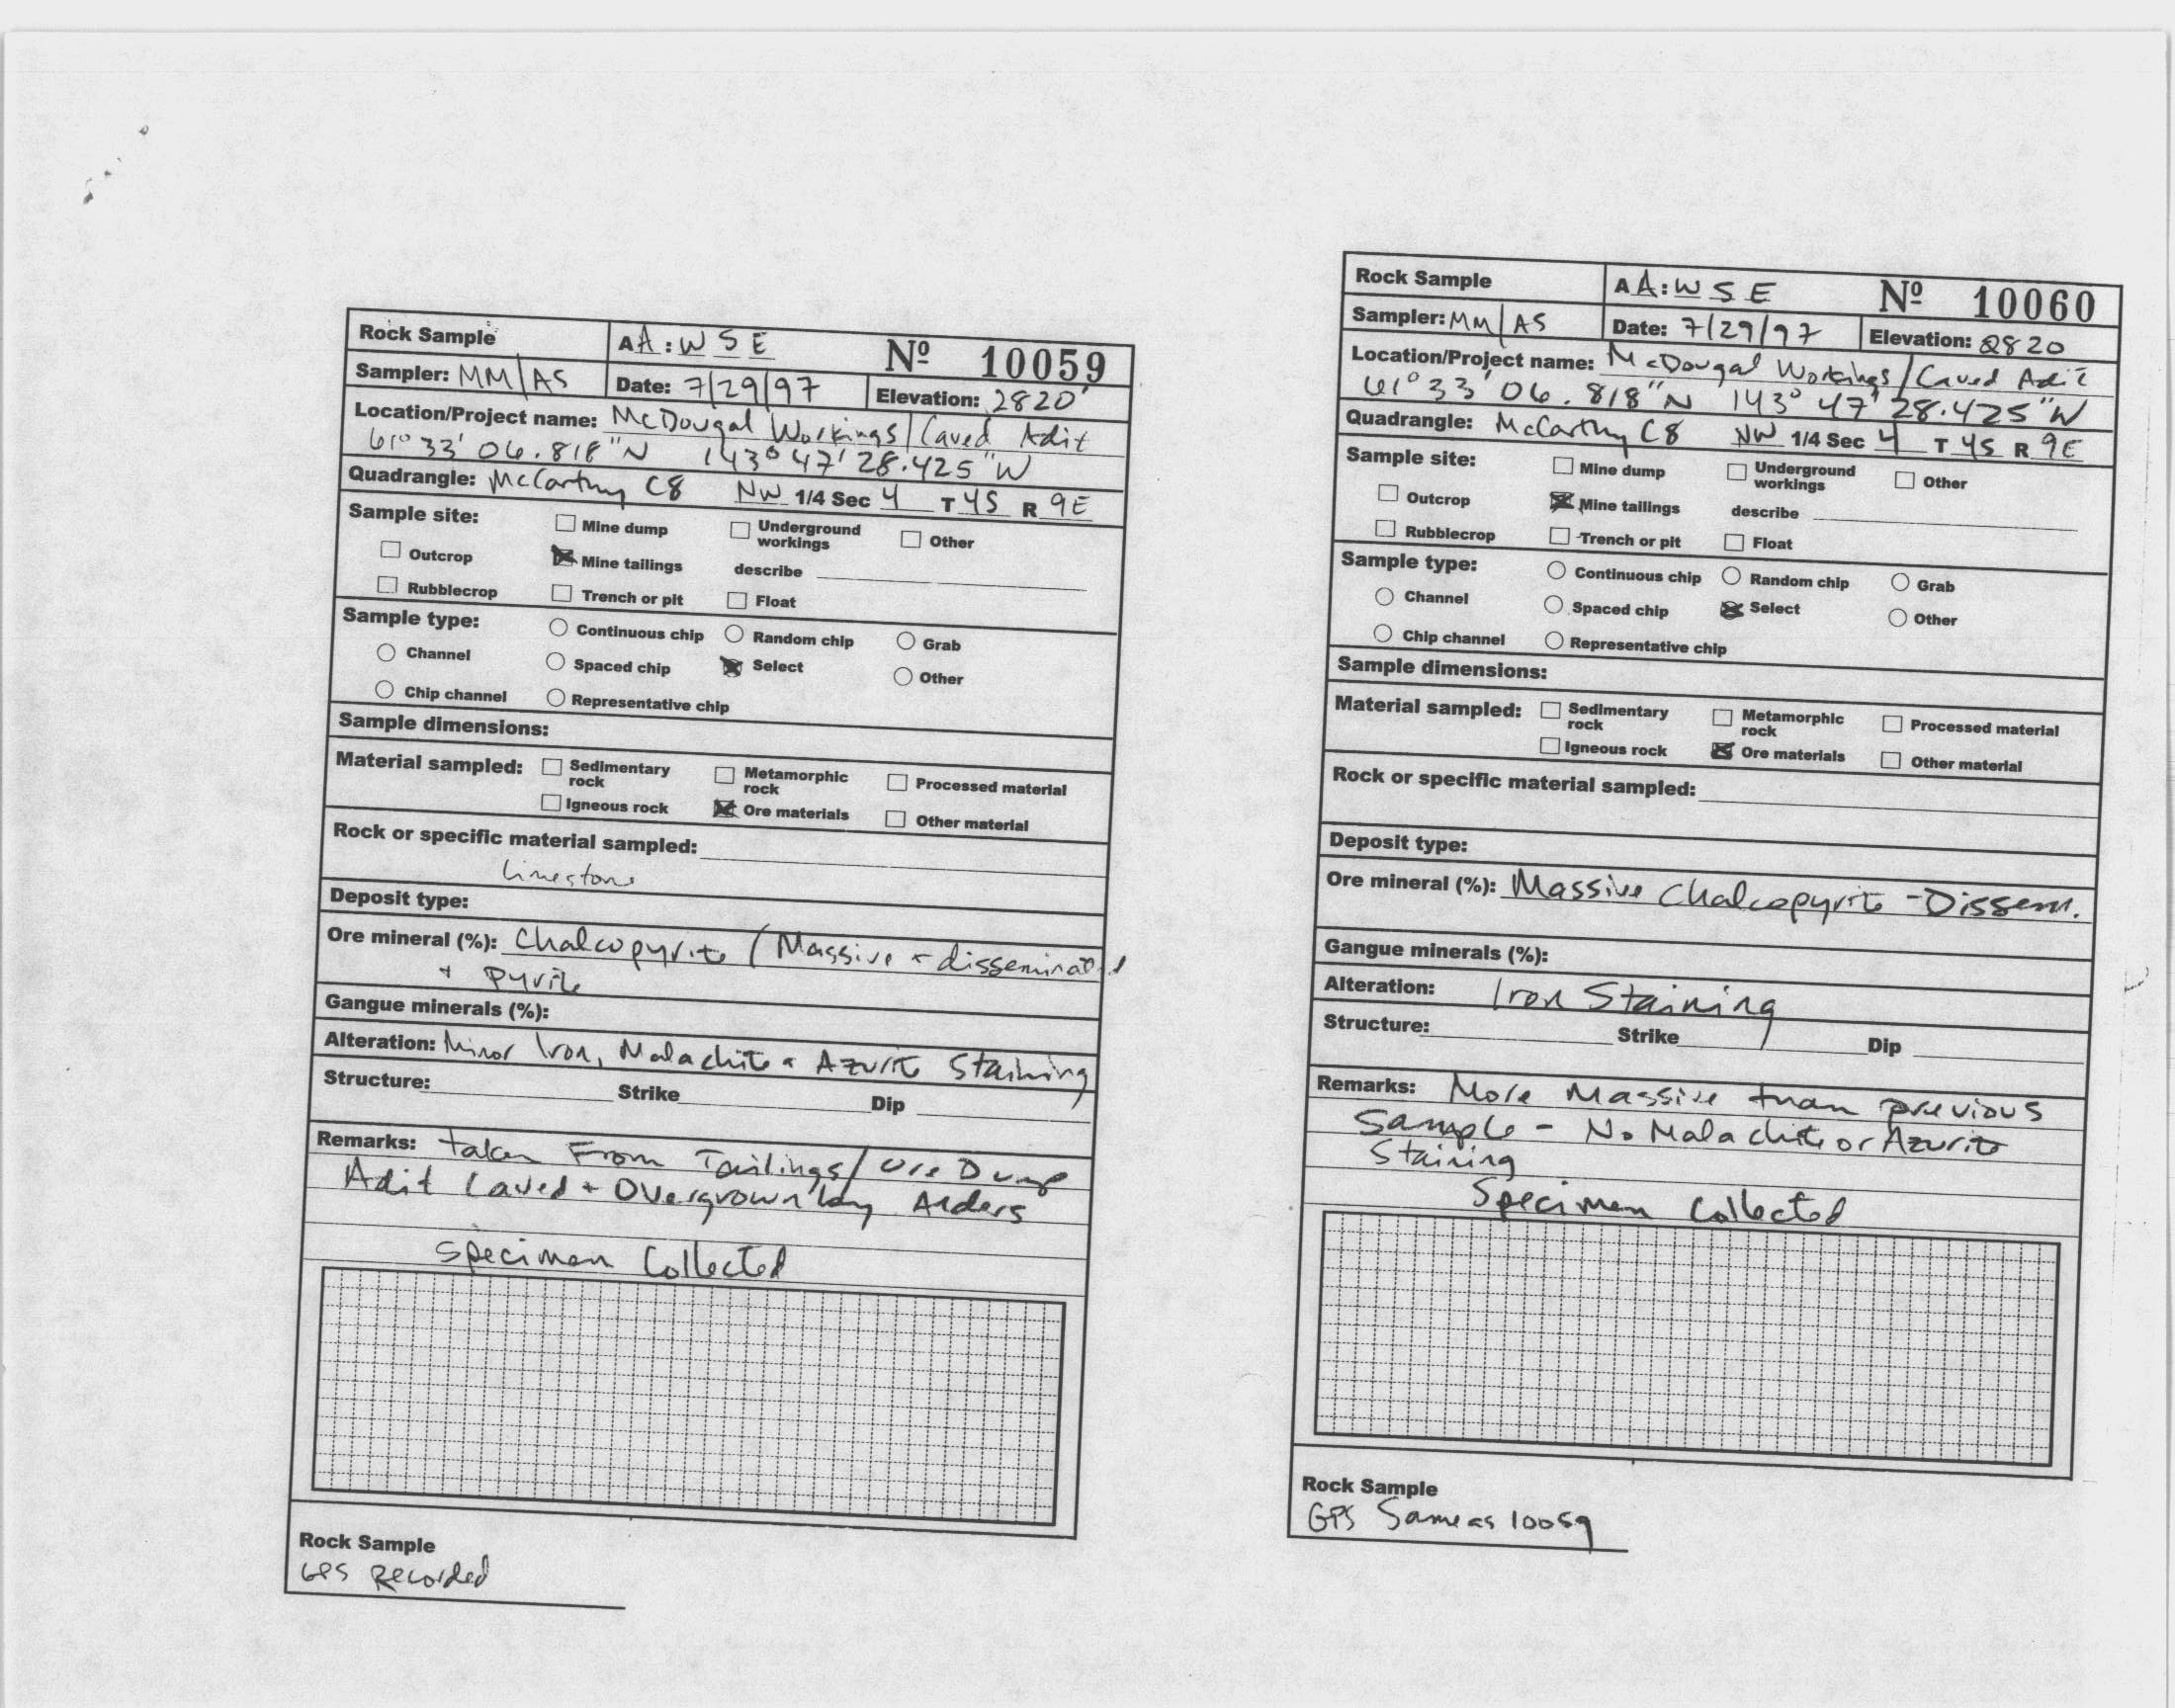 Rock Sample AA:WSE Nº 10059
Sampler: MM/AS Date: 7/29/97 Elevation: 2820'
Location/Project name: McDougal Workings/Caved Adit
61° 33' 06.818"N 143° 47' 28.425"W
Quadrangle: McCarthy C8 NW 1/4 Sec 4 T 4S R 9E
Sample site: Mine dump Underground workings Other
Outcrop Mine tailings describe
Rubblecrop Trench or pit Float
Sample type: Continuous chip Random chip Grab
Channel Spaced chip Select Other
Chip channel Representative chip
Sample dimensions:
Material sampled: Sedimentary rock Metamorphic rock Processed material
Igneous rock Ore materials Other material
Rock or specific material sampled:
limestone
Deposit type:
Ore mineral (%): Chalcopyrite (Massive + disseminated
+ Pyrite
Gangue minerals (%):
Alteration: Minor Iron, Malachite + Azurite Staining
Structure: Strike Dip
Remarks: taken From Tailings/Ore Dump
Adit Caved + Overgrown by Alders
Specimen Collected
Rock Sample
GPS Recorded
Rock Sample AA:WSE Nº 10060
Sampler: MM/AS Date: 7/29/97 Elevation: 2820
Location/Project name: McDougal Workings/Caved Adit
61° 33' 06.818"N 143° 47' 28.425"W
Quadrangle: McCarthy C8 NW 1/4 Sec 4 T 4S R 9E
Sample site: Mine dump Underground workings Other
Outcrop Mine tailings describe
Rubblecrop Trench or pit Float
Sample type: Continuous chip Random chip Grab
Channel Spaced chip Select Other
Chip channel Representative chip
Sample dimensions:
Material sampled: Sedimentary rock Metamorphic rock Processed material
Igneous rock Ore materials Other material
Rock or specific material sampled:
Deposit type:
Ore mineral (%): Massive Chalcopyrite - Dissem.
Gangue minerals (%):
Alteration: Iron Staining
Structure: Strike Dip
Remarks: More Massive than previous
Sample - No Malachite or Azurite
Staining
Specimen Collected
Rock Sample
GPS Same as 10059